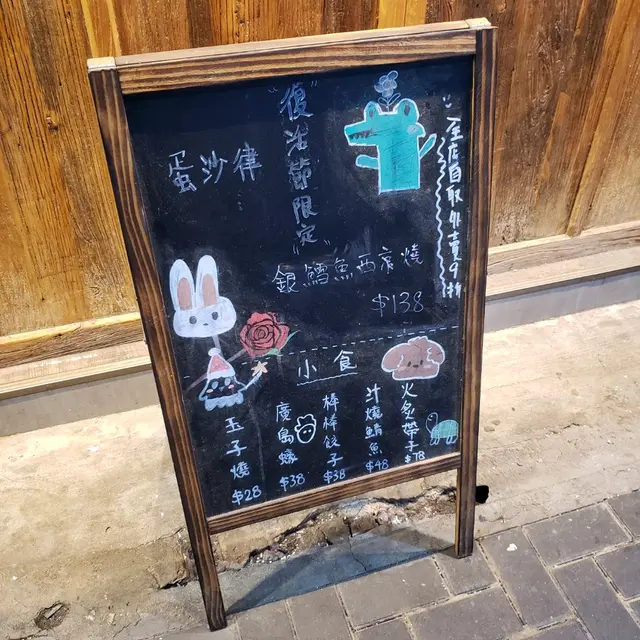 "復活節限定"
全店自取外賣9折
蛋沙律
銀鱈魚西京燒
$138
小食
玉子燒
$28
廣島蠔
$38
棒棒餃子
$38
汁燒鯖魚
$48
火炙帶子
$78